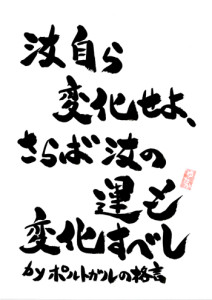 汝自ら
変化せよ、
さらば汝の
運も
変化すべし
by ポルトガルの格言